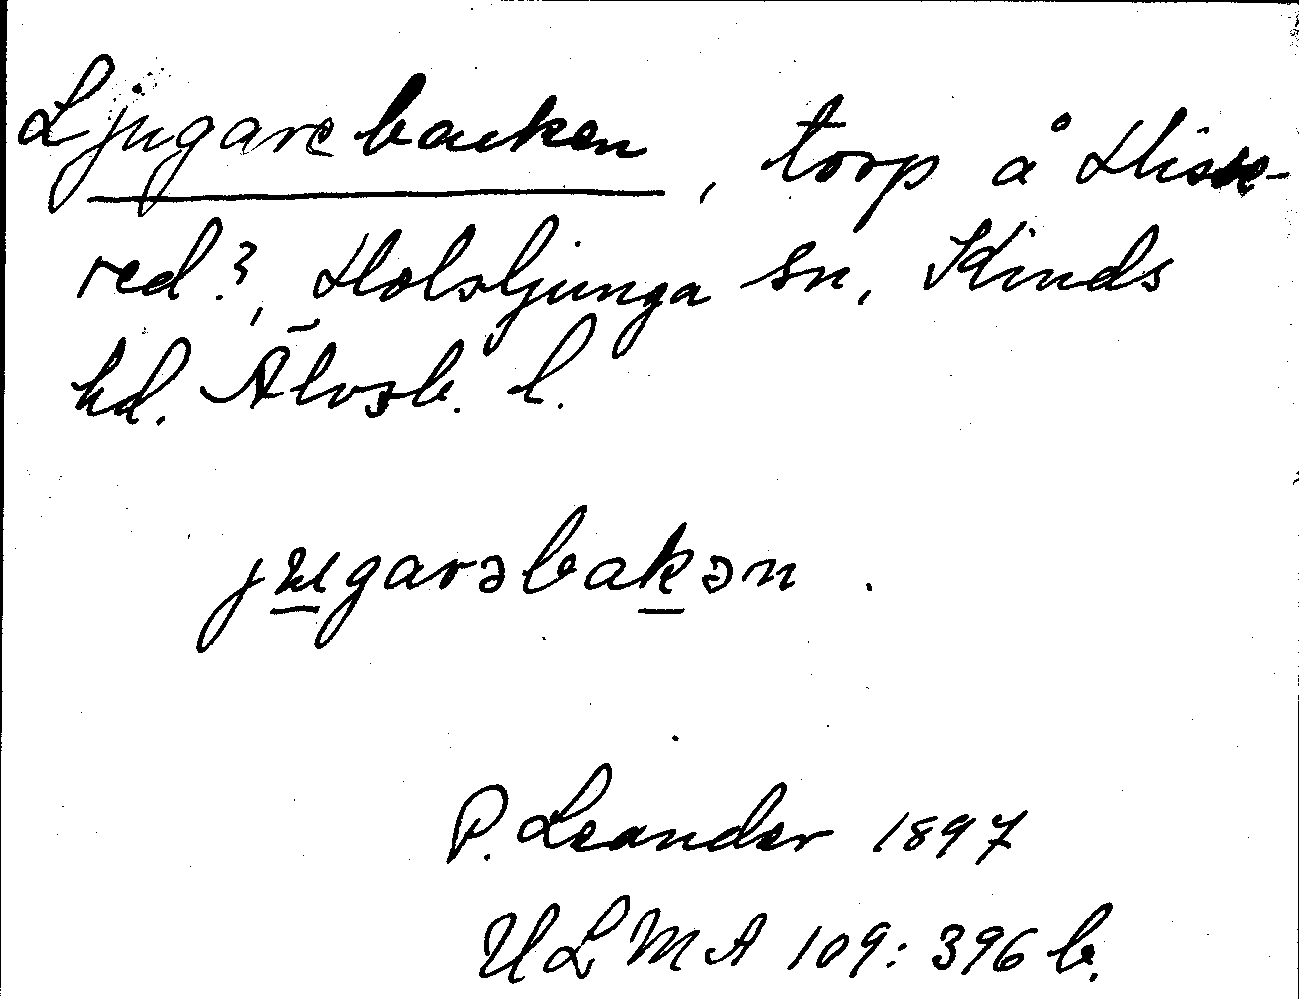 Ljugarebacken, torp å Hiss-
red?, Holsljunga sn, Kinds
hd. Älvsb. l.
jugarəbakən.
P. Leander 1897
ULMA 109: 396 b.